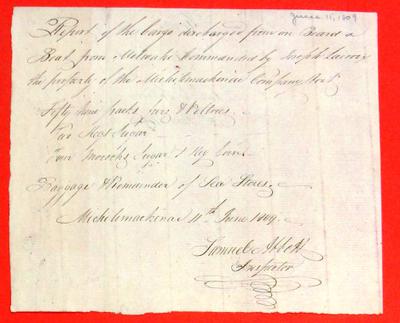 June 11, 1809
Report of the Cargo discharged from on Board a
Boat from Milwakie Commanded by Joseph
the property of the Michilimackinac Company
Fifty nine packs furs & Peltries
Sugar
Four Mococks Sugar 1 Keg
Baggage & Remainder of Sea Stores
Michilimackinac 11th June 1809
Samuel Abbott
Inspector